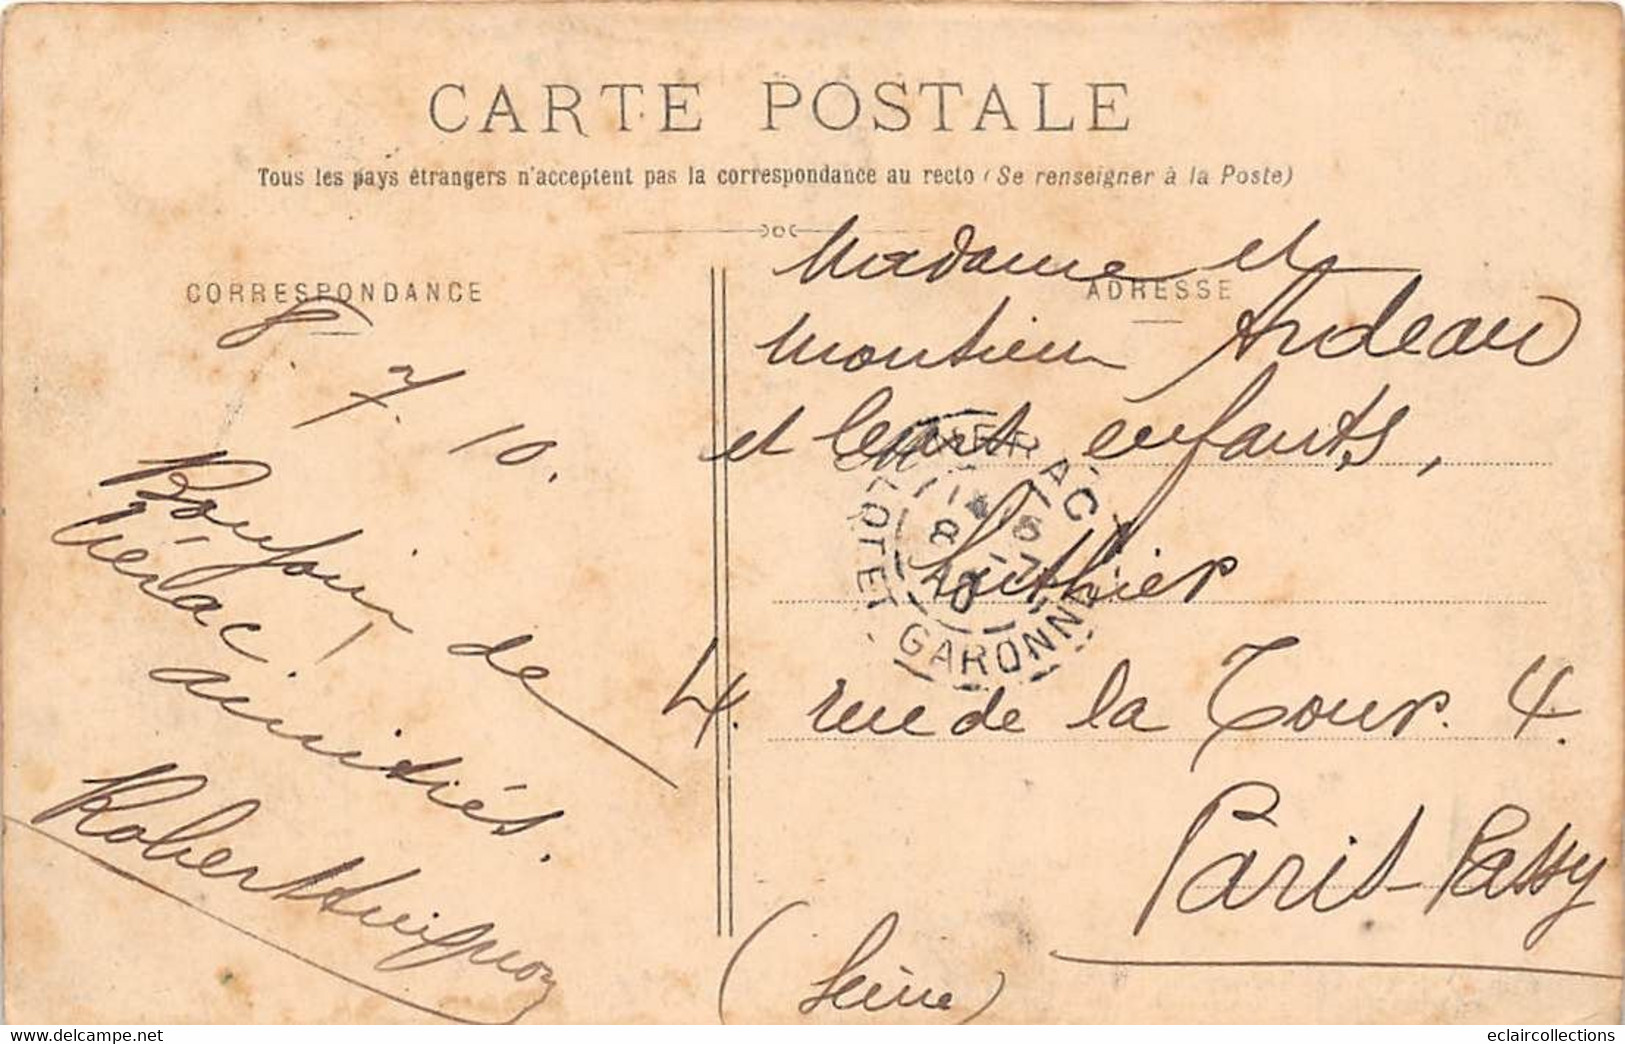 CARTE POSTALE
Tous les pays étrangers n'acceptent pas la correspondance au recto (Se renseigner à la Poste)
CORRESPONDANCE
8. 7. 10.
Bonjour de
Nérac!
amitiés.
Robert
ADRESSE
Madame et
Monsieur Ardeau
et leurs enfants,
Luthier
4. rue de la Tour. 4.
Paris-Passy
(Seine)
NERAC
LOT-ET-GARONNE
8 -7
10
www.delcampe.net
eclaircollections